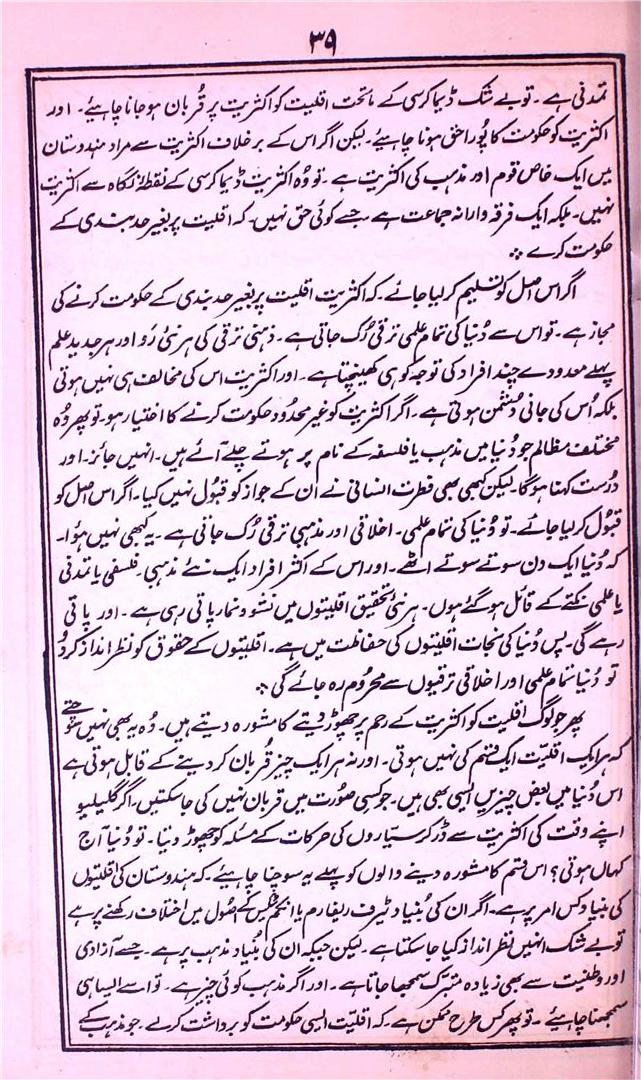 ۳۹
تمدنی ہے۔ تو بے شک ڈیماکرسی کے ماتحت اقلیت کو اکثریت پر قُربان ہو جانا چاہیئے۔ اور
اکثریت کو حکومت کا پُورا حق ہونا چاہیئے۔ لیکن اگر اس کے برخلاف اکثریت سے مراد ہندوستان
میں ایک خاص قوم اور مذہب کی اکثریت ہے۔ تو وُہ اکثریت ڈیماکرسی کے نقطۂ نگاہ سے اکثریت
نہیں۔ بلکہ ایک فرقہ وارانہ جماعت ہے۔ جسے کوئی حق نہیں۔ کہ اقلیت پر بغیر حد بندی کے
حکومت کرے ⁘
اگر اس اصل کو تسلیم کر لیا جائے۔ کہ اکثریت اقلیت پر بغیر حد بندی کے حکومت کرنے کی
مجاز ہے۔ تو اس سے دُنیا کی تمام علمی ترقی رُک جاتی ہے۔ ذہنی ترقی کی ہر نئی رَو اور ہر جدید علم
پہلے معدودے چند افراد کی توجہ کو ہی کھینچتا ہے۔ اور اکثریت اس کی مخالف ہی نہیں ہوتی
بلکہ اُس کی جانی دُشمن ہوتی ہے۔ اگر اکثریت کو غیر محدُود حکومت کرنے کا اختیار ہو۔ تو پھر وُہ
مختلف مظالم جو دُنیا میں مذہب یا فلسفہ کے نام پر ہوتے چلے آئے ہیں۔ انہیں جائز۔ اور
دُرست کہنا ہوگا۔ لیکن کبھی بھی فطرت انسانی نے اُن کے جواز کو قبول نہیں کیا۔ اگر اس اصل کو
قبُول کر لیا جائے۔ تو دُنیا کی تمام علمی۔ اخلاقی اور مذہبی ترقی رُک جاتی ہے۔ یہ کبھی نہیں ہؤا۔
کہ دُنیا ایک دن سوتے سوتے اٹھے۔ اور اس کے اکثر افراد ایک نئے مذہبی۔ فلسفی یا تمدنی
یا علمی نکتے کے قائل ہو گئے ہوں۔ ہر نئی تحقیق اقلیتوں میں نشوونما پاتی رہی ہے۔ اور پاتی
رہے گی۔ پس دُنیا کی نجات اقلیتوں کی حفاظت میں ہے۔ اقلیتوں کے حقوق کو نظر انداز کردو
تو دُنیا تمام علمی اور اخلاقی ترقیوں سے محروُم رہ جائے گی ⁘
پھر جو لوگ اقلیت کو اکثریت کے رحم پر چھوڑ دینے کا مشورہ دیتے ہیں۔ وُہ یہ بھی نہیں سوچتے
کہ ہر ایک اقلیّت ایک قسم کی نہیں ہوتی۔ اور نہ ہر ایک چیز قُربان کر دینے کے قابل ہوتی ہے
اس دُنیا میں بعض چیزیں ایسی بھی ہیں۔ جو کسی صورت میں قربان نہیں کی جاسکتیں۔ اگر گلیلیو
اپنے وقت کی اکثریت سے ڈر کر سیّاروں کی حرکات کے مسئلہ کو چھوڑ دیتا۔ تو دُنیا آج
کہاں ہوتی؟ اس قسم کا مشورہ دینے والوں کو پہلے یہ سوچنا چاہیئے۔ کہ ہندوستان کی اقلیتوں
کی بنیاد کس امر پر ہے۔ اگر ان کی بُنیاد ٹیرف ریفارم یا انکم ٹیکس کے اصُول میں اختلاف رکھنے پر ہے
تو بے شک انہیں نظر انداز کیا جا سکتا ہے۔ لیکن جبکہ ان کی بُنیاد مذہب پر ہے۔ جسے آزادی
اور وطنیت سے بھی زیادہ متبرّک سمجھا جاتا ہے۔ اور اگر مذہب کوئی چیز ہے۔ تو اسے ایسا ہی
سمجھنا چاہیئے۔ تو پھر کس طرح ممکن ہے۔ کہ اقلیّت ایسی حکومت کو برداشت کرلے۔ جو مذہب کے